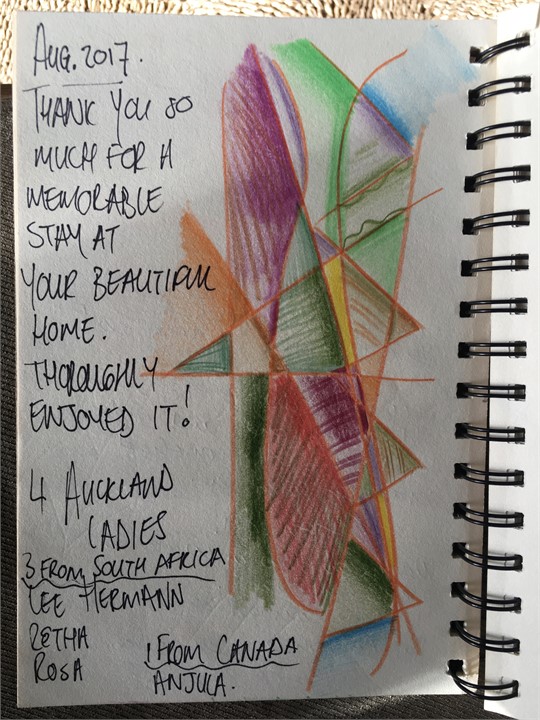 AUG. 2017.
THANK YOU SO
MUCH FOR A
MEMORABLE
STAY AT
YOUR BEAUTIFUL
HOME.
THOROUGHLY
ENJOYED IT!
4 AUCKLAND
LADIES
3 FROM SOUTH AFRICA
LEE HERMANN
RETHA
ROSA
1 FROM CANADA
ANJULA.